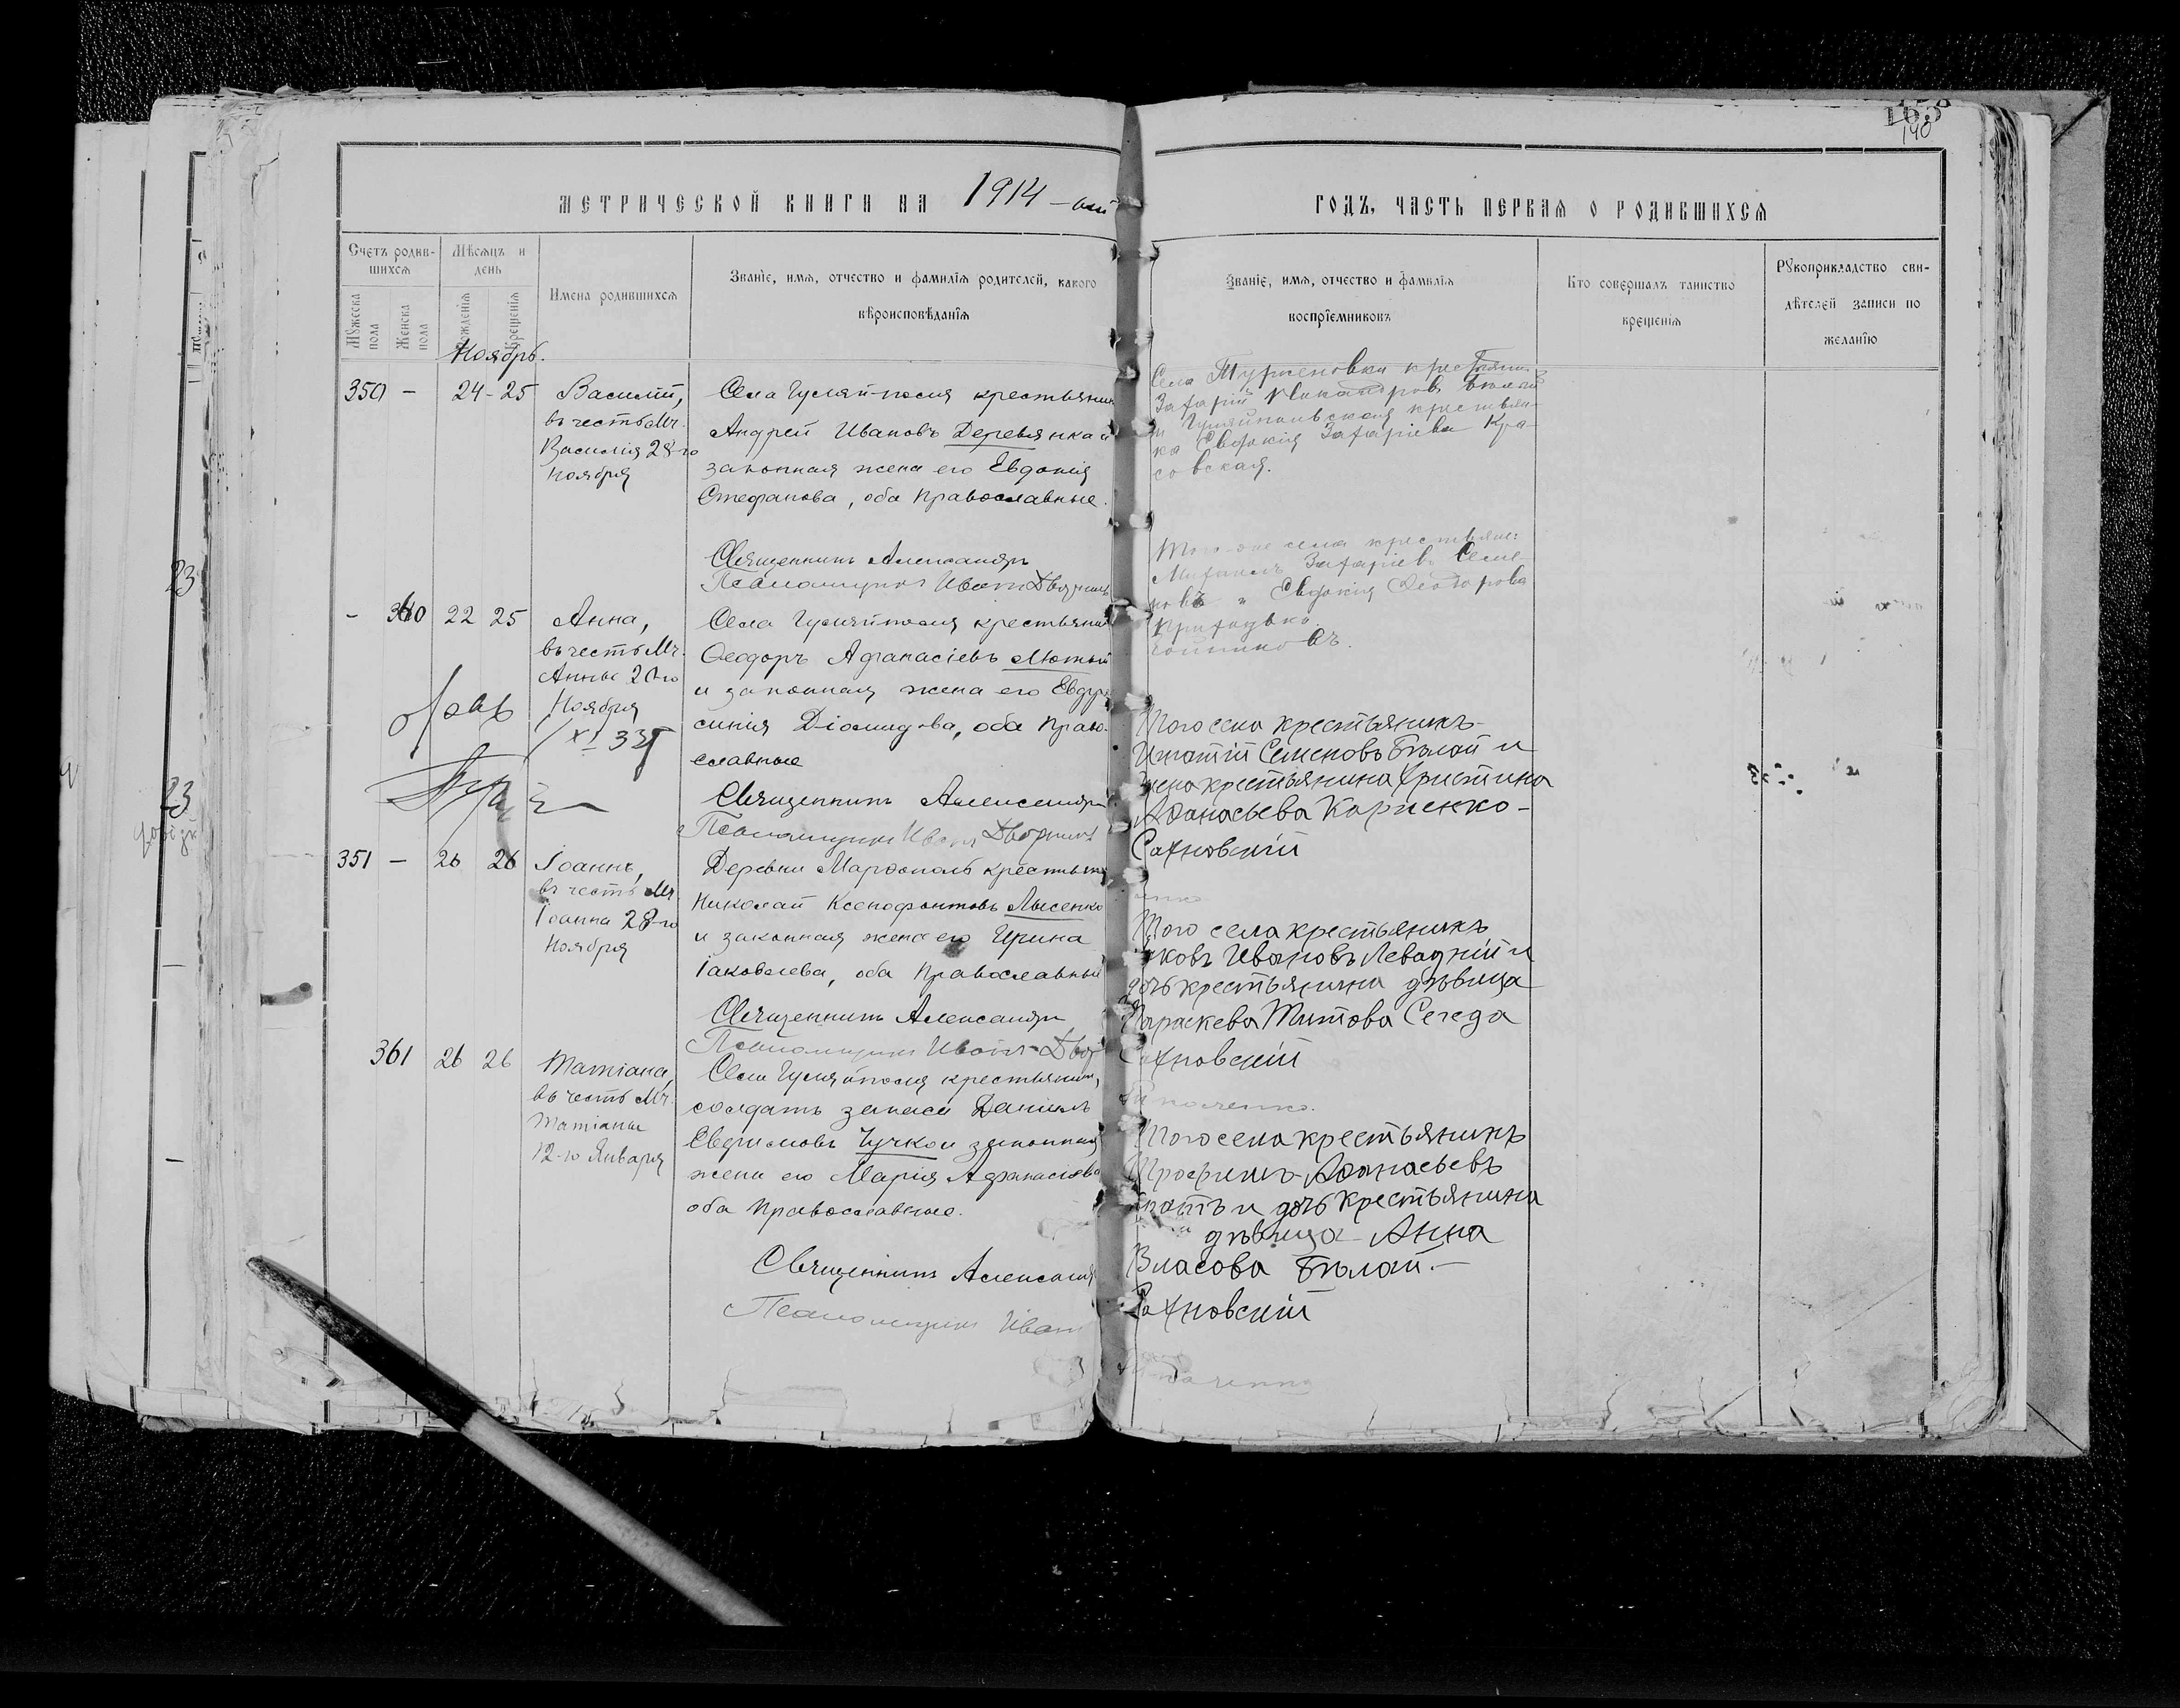 МЕТРИЧЕСКОЙ КНИГИ НА 1914-ый
Счетъ родив-
шихся
Мѣсяцъ и
день
Мужеска
пола
Женска
пола
Рожденія
Крещенія
Имена родившихся
Званіе, имя, отчество и фамилія родителей, какого
вѣроисповѣданія
Ноябрь.
350 - 24-25
Василій,
въ честь Мч.
Василія 28-го
Ноября
Села Гуляйполя крестьянинъ
Андрей Ивановъ Деревянка и
законная жена его Евдокія
Стефанова, оба православные.
Священникъ Александръ
Псаломщикъ Иванъ
- 360 22 25
Анна,
въ честь Мч.
Анны 20-го
Ноября
Села Гуляйполя крестьянинъ
Феодоръ Афанасіевъ Лютый
и законная жена его Евдро
синія Діомидова, оба право-
славные
Священникъ Александръ
Псаломщикъ Иванъ
351 - 26 26
Іоаннъ,
въ честь Мч
Іоанна 28-го
Ноября
Деревни Марфополь крестьянинъ
Николай Ксенофонтовъ Лысенко
и законная жена его Ирина
Іаковлева, оба православные
Священникъ Александръ
Псаломщикъ Иванъ
361 26 26
Татіана,
въ честь Мч.
Татіаны
12-го Января
Села Гуляйполя крестьянинъ,
солдатъ запаса Даніилъ
Евфимовъ Чучко и законная
жена его Марія Афанасіева
оба православные.
Священникъ Александръ
Псаломщикъ Иванъ
140
ГОДЪ, ЧАСТЬ ПЕРВАЯ О РОДИВШИХСЯ
Званіе, имя, отчество и фамилія
воспріемниковъ
Кто совершалъ таинство
крещенія
Рукоприкладство сви-
дѣтелей записи по
желанію
Села Туркеновки крестьянинъ
Захарій Никандровъ Бѣлай
и Гуляйпольская крестьян-
ка Евдокія Захаріева Кра-
совская.
Того-же села крестьяне:
Михаилъ Захаріевъ Семе-
новъ и Евдокія Феодорова
Того села крестьянинъ
Игнатій Семеновъ Бѣлай и
жена крестьянина Христина
Афанасьева Карпенко-
Сахновскій
Того села крестьянинъ
Яковъ Ивановъ Левадній и
дочь крестьянина дѣвица
Параскева Титова Середа
Сахновскій
Того села крестьянинъ
Трофимъ Афанасьевъ
и дочь крестьянина
дѣвица Анна
Власова Бѣлай.-
Сахновскій